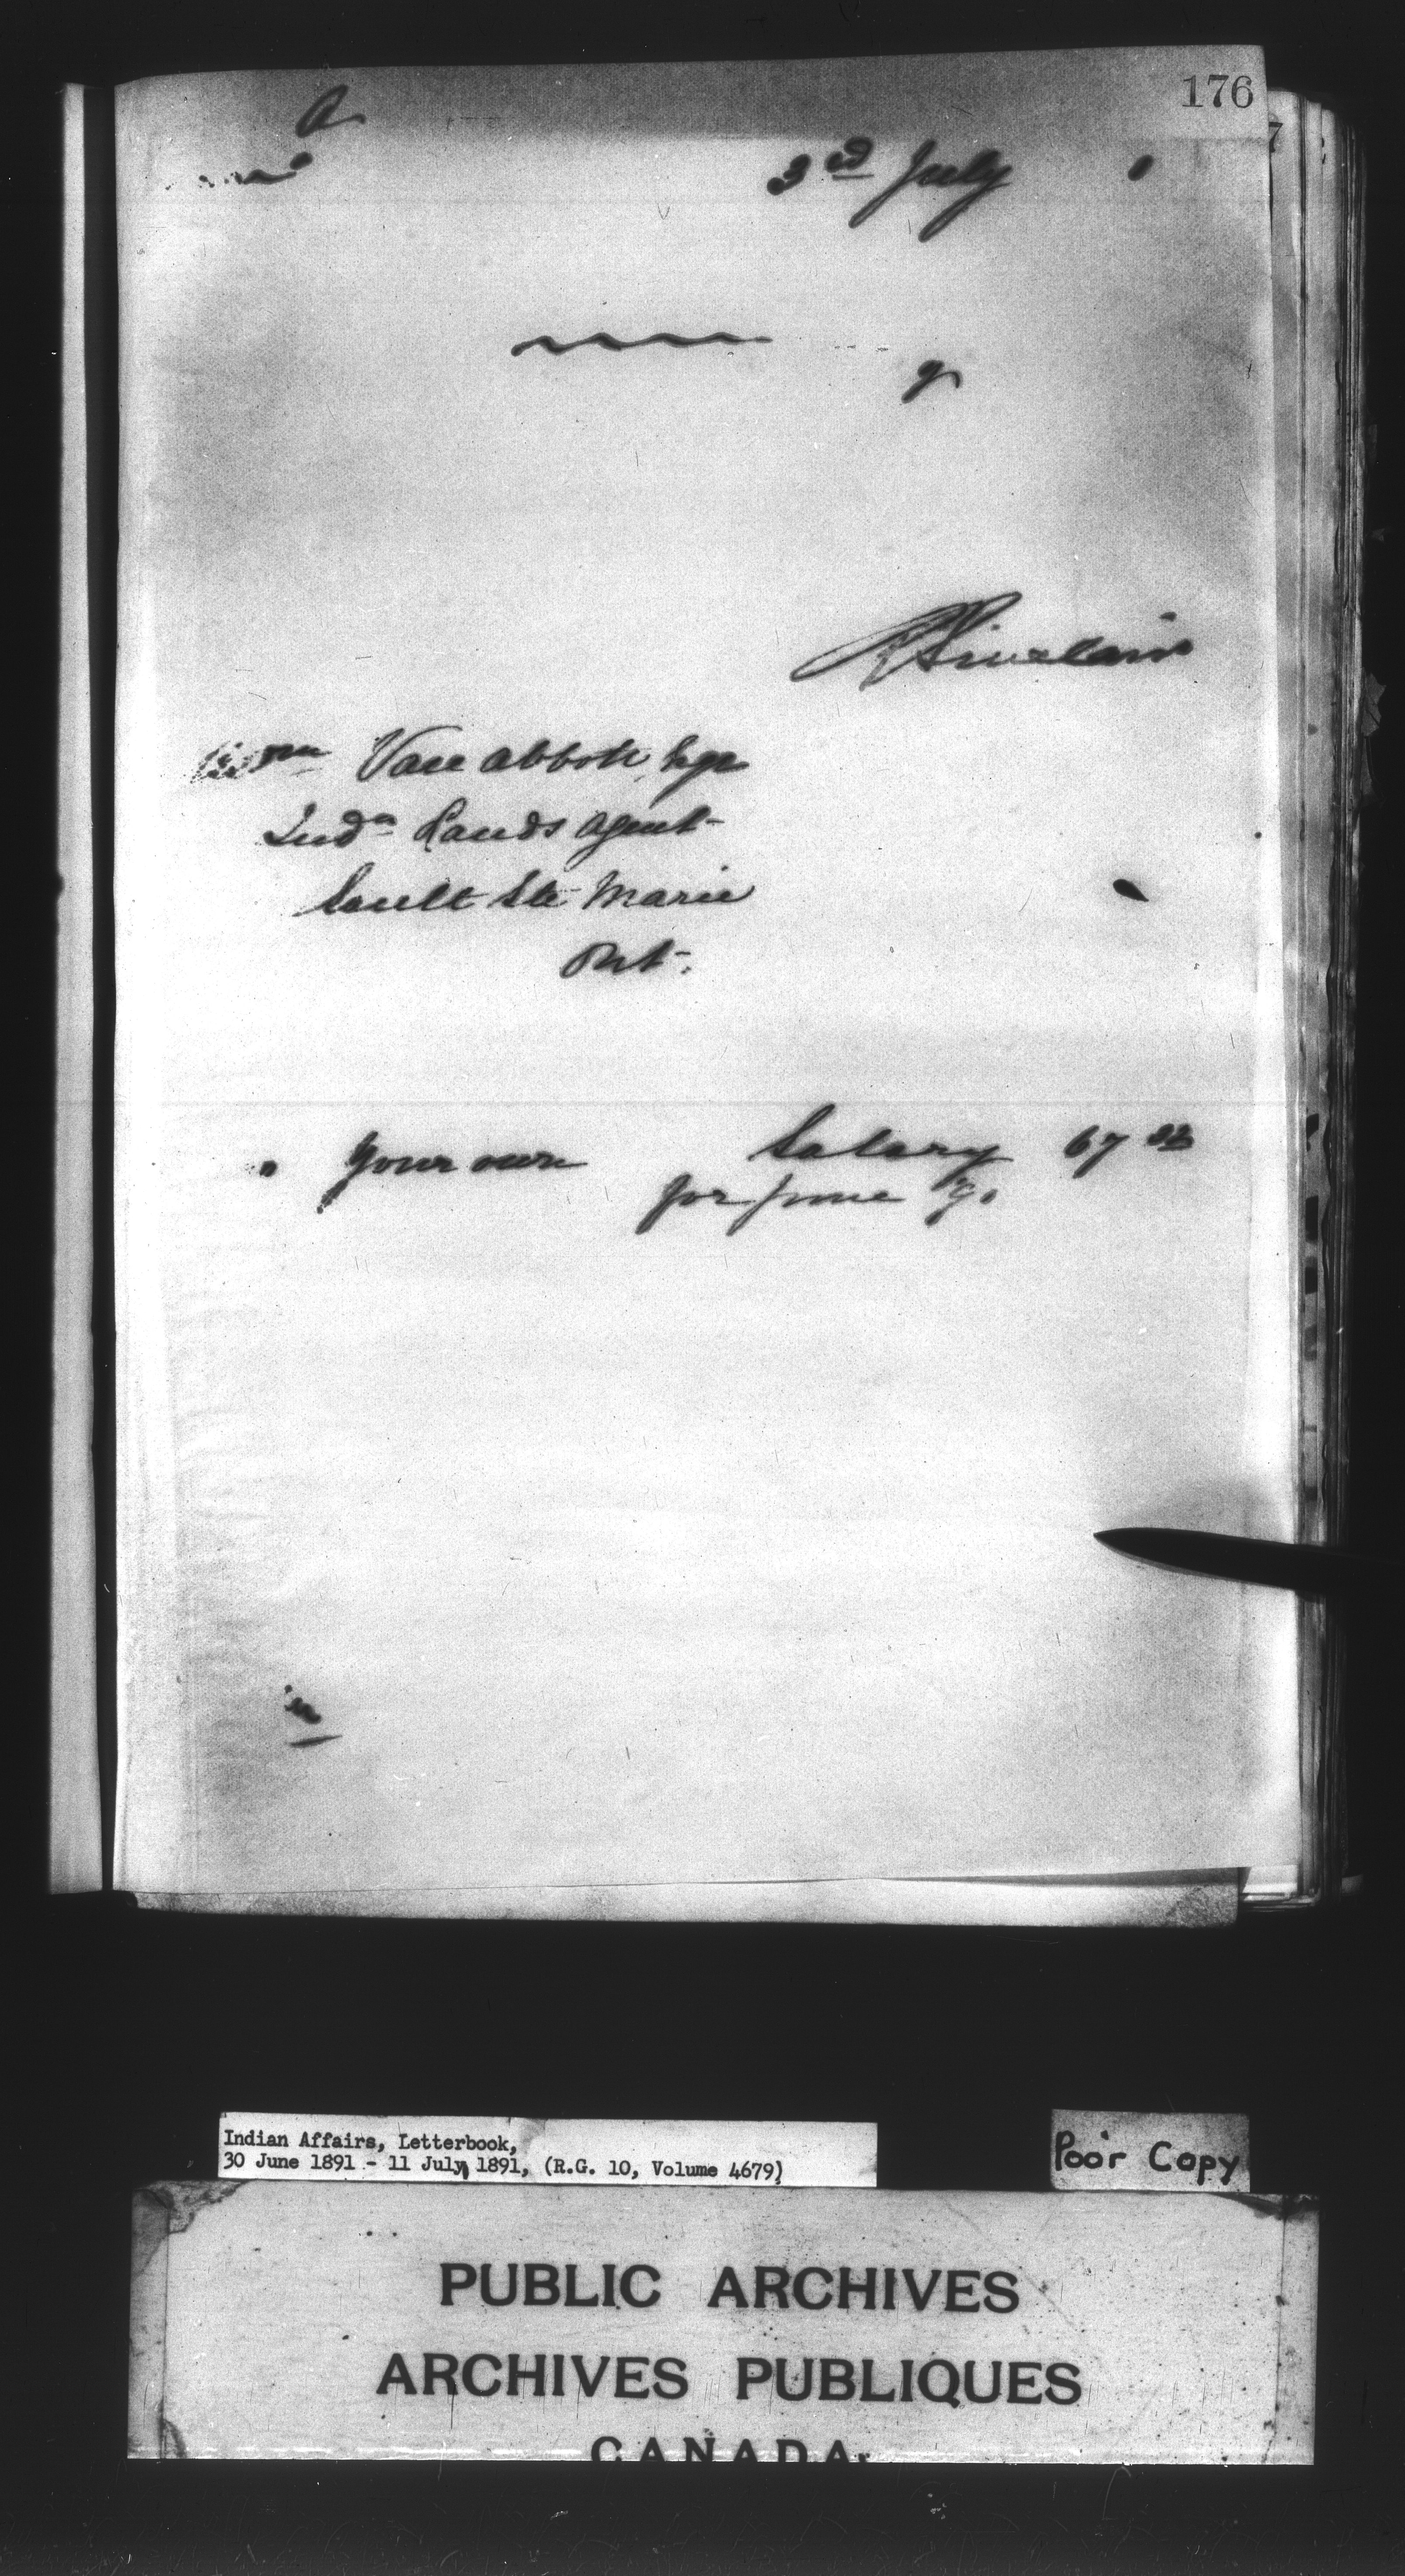 176
A
3rd July 1
R Sinclair
Wm Van Abbott Esqr
Indn Lands Agent
Sault Ste Marie
Ont.
" your own Salary 67
for June 91
Indian Affairs, Letterbook,
30 June 1891 - 11 July 1891, (R.G. 10, Volume 4679)
Poor Copy
PUBLIC ARCHIVES
ARCHIVES PUBLIQUES
CANADA